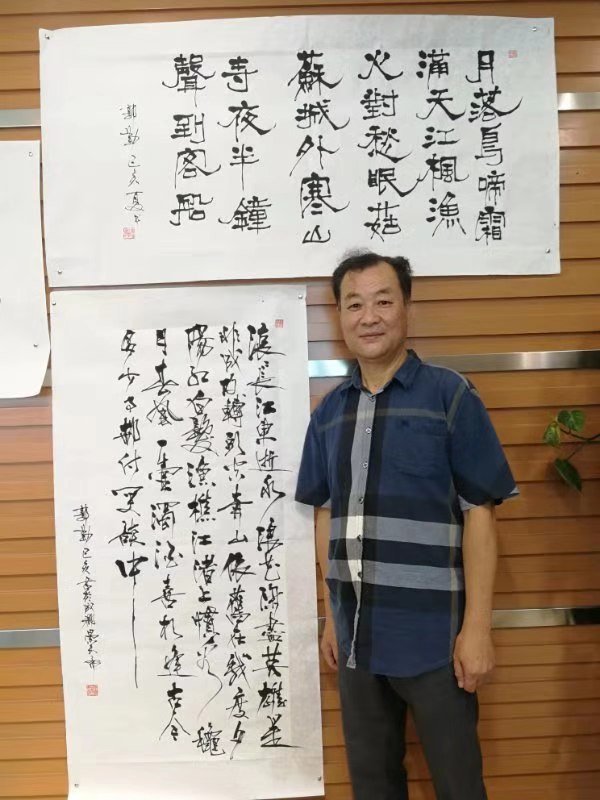 月落烏啼霜
滿天江楓漁
火對愁眠菇
蘇城外寒山
寺夜半鐘
聲到客船
勤己亥夏
滚長江東逝水浪花淘盡英雄是
非成敗轉頭空青山依舊在幾度夕
陽紅白髮漁樵江渚上慣看秋
月春風一壺濁酒喜相逢古今
多少事都付笑談中
勤己亥